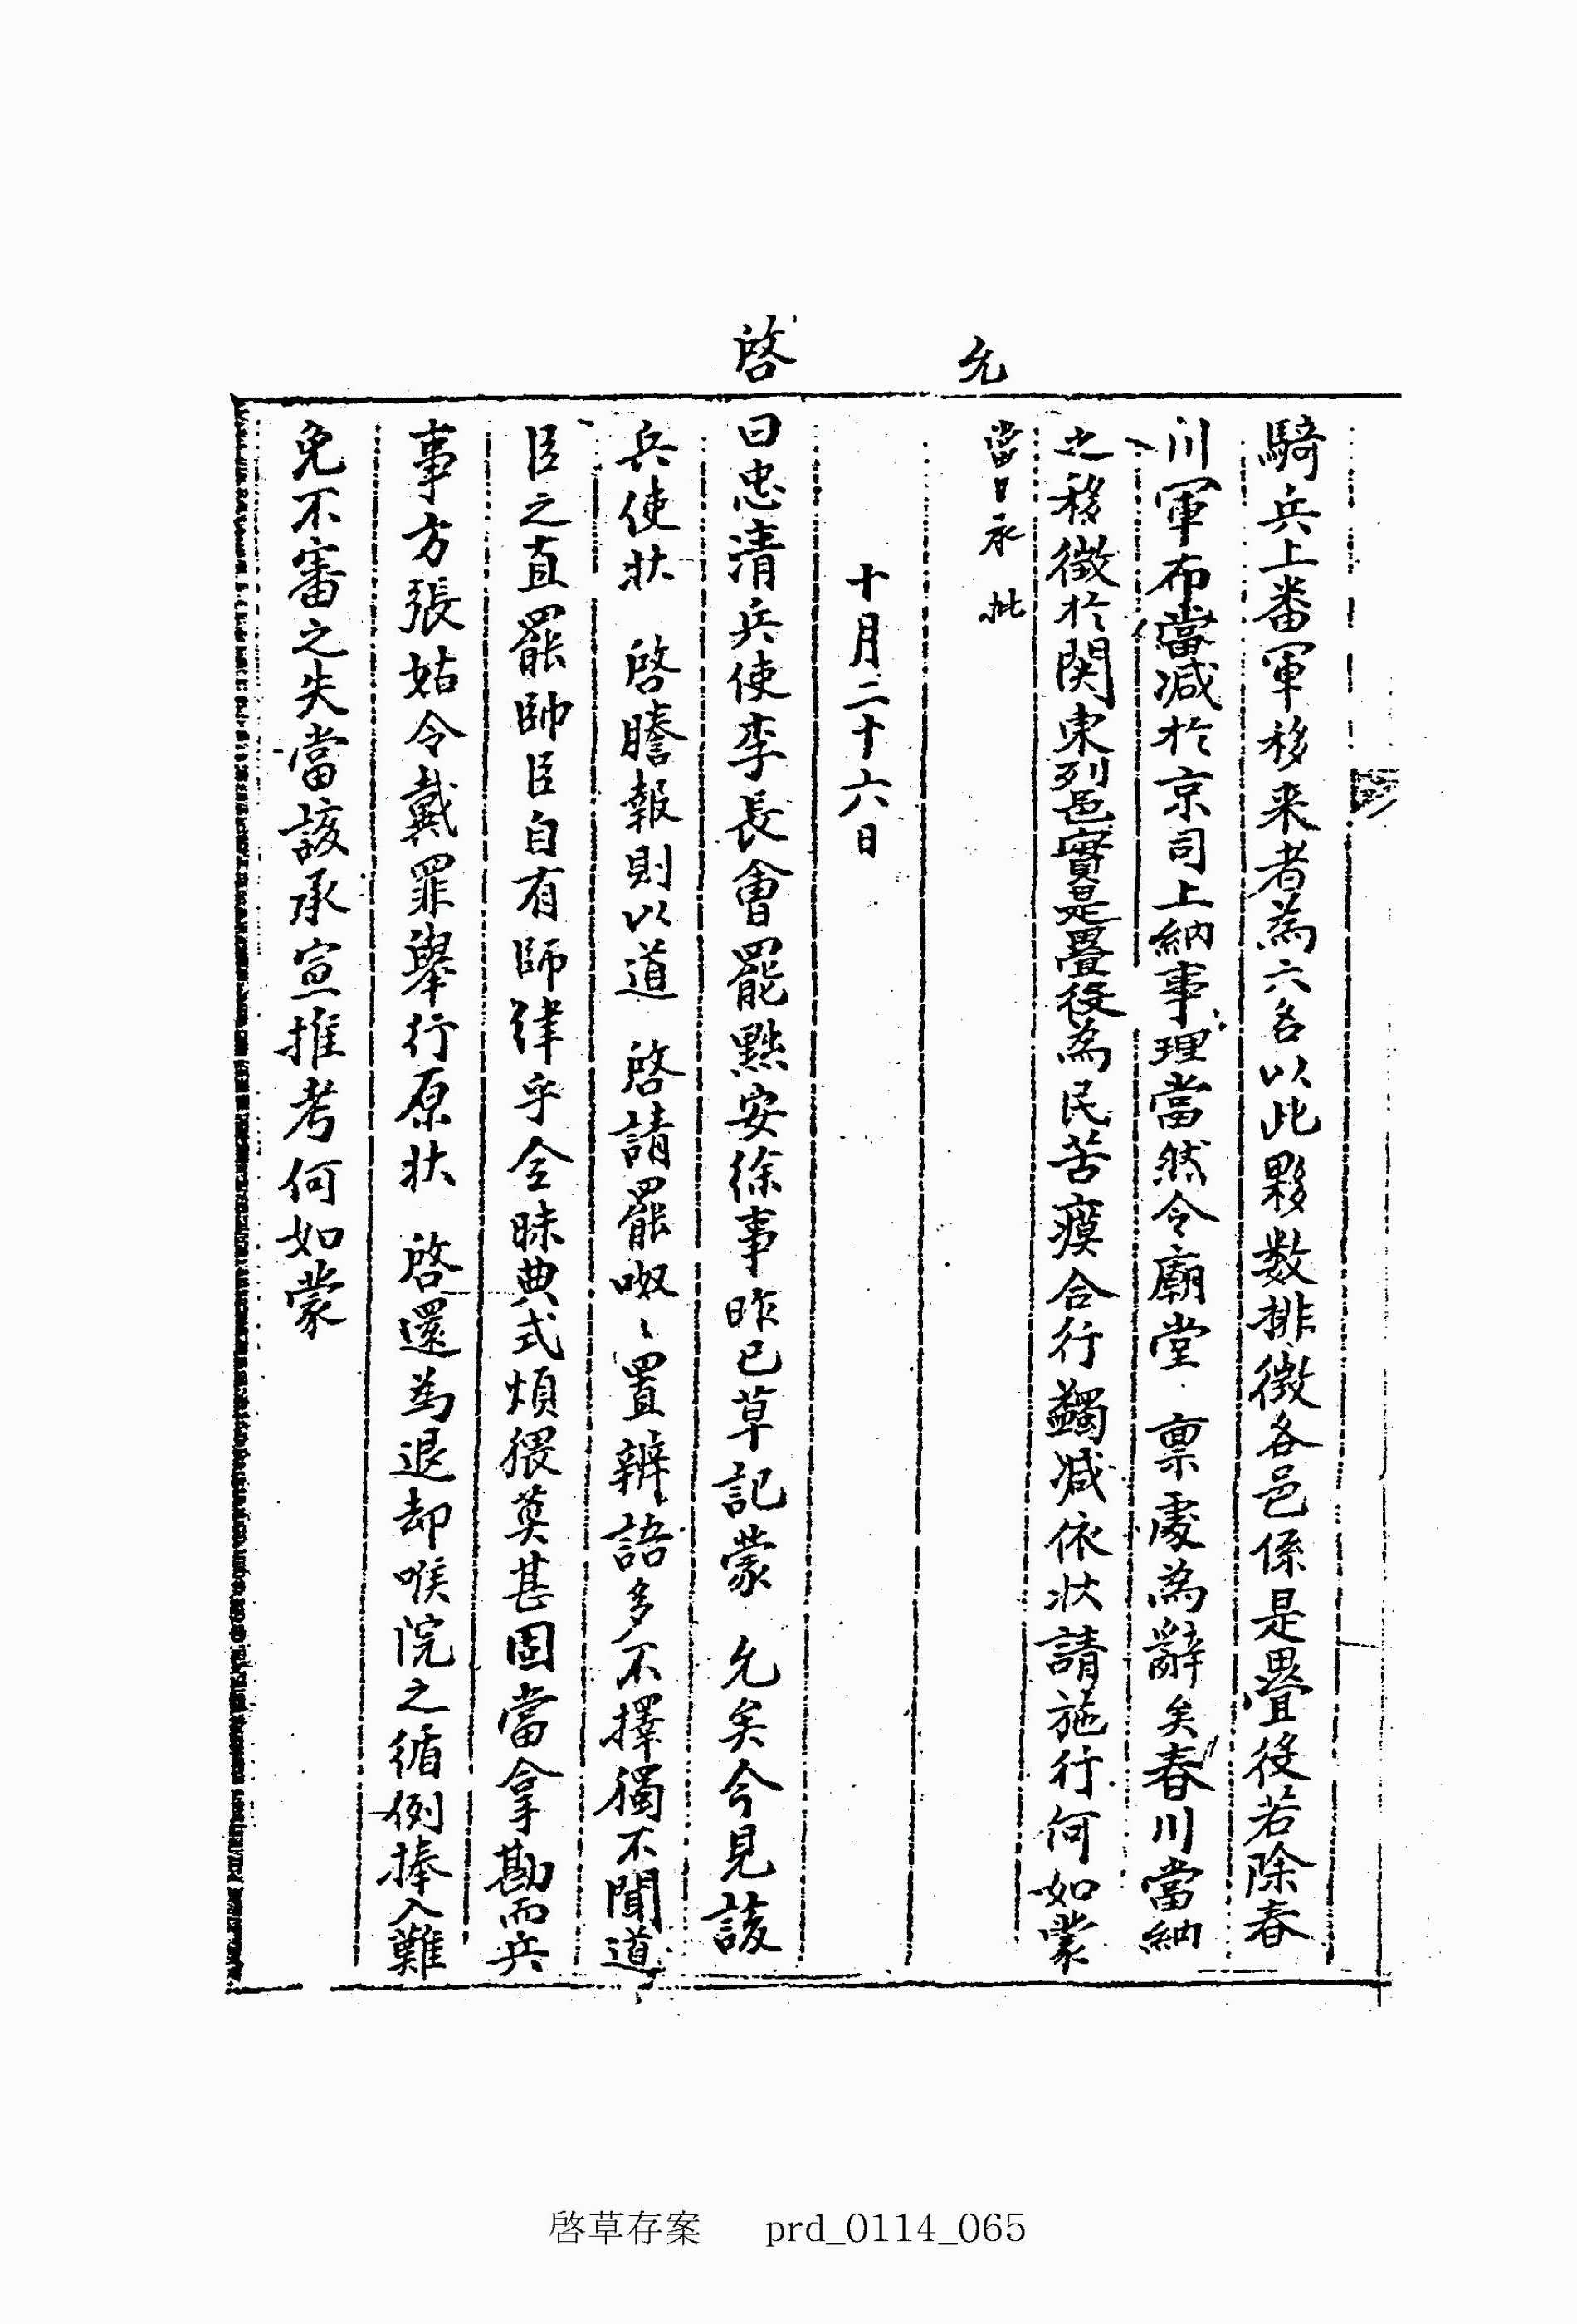 騎兵上番軍移来者為六名以此夥数排徵各邑係是疊役若除春
川軍布當減於京司上納事理當然令廟堂 禀處為辭矣春川當納
之移徵於関東列邑實是疊役為民苦瘼合行蠲减依狀請施行何如蒙
允
當日承 批
十月二十六日
啓
曰忠清兵使李長會罷黜安徐事昨已草記蒙 允矣今見該
兵使狀 啓謄報則以道 啓請罷呶〻置辨語多不擇獨不聞道
臣之直罷帥臣自有師律乎全昧典式煩猥莫甚固當拿勘而兵
事方張姑令戴罪舉行原狀 啓還為退却喉院之循例捧入難
免不審之失當該承宣推考何如蒙
啓草存案 prd_0114_065